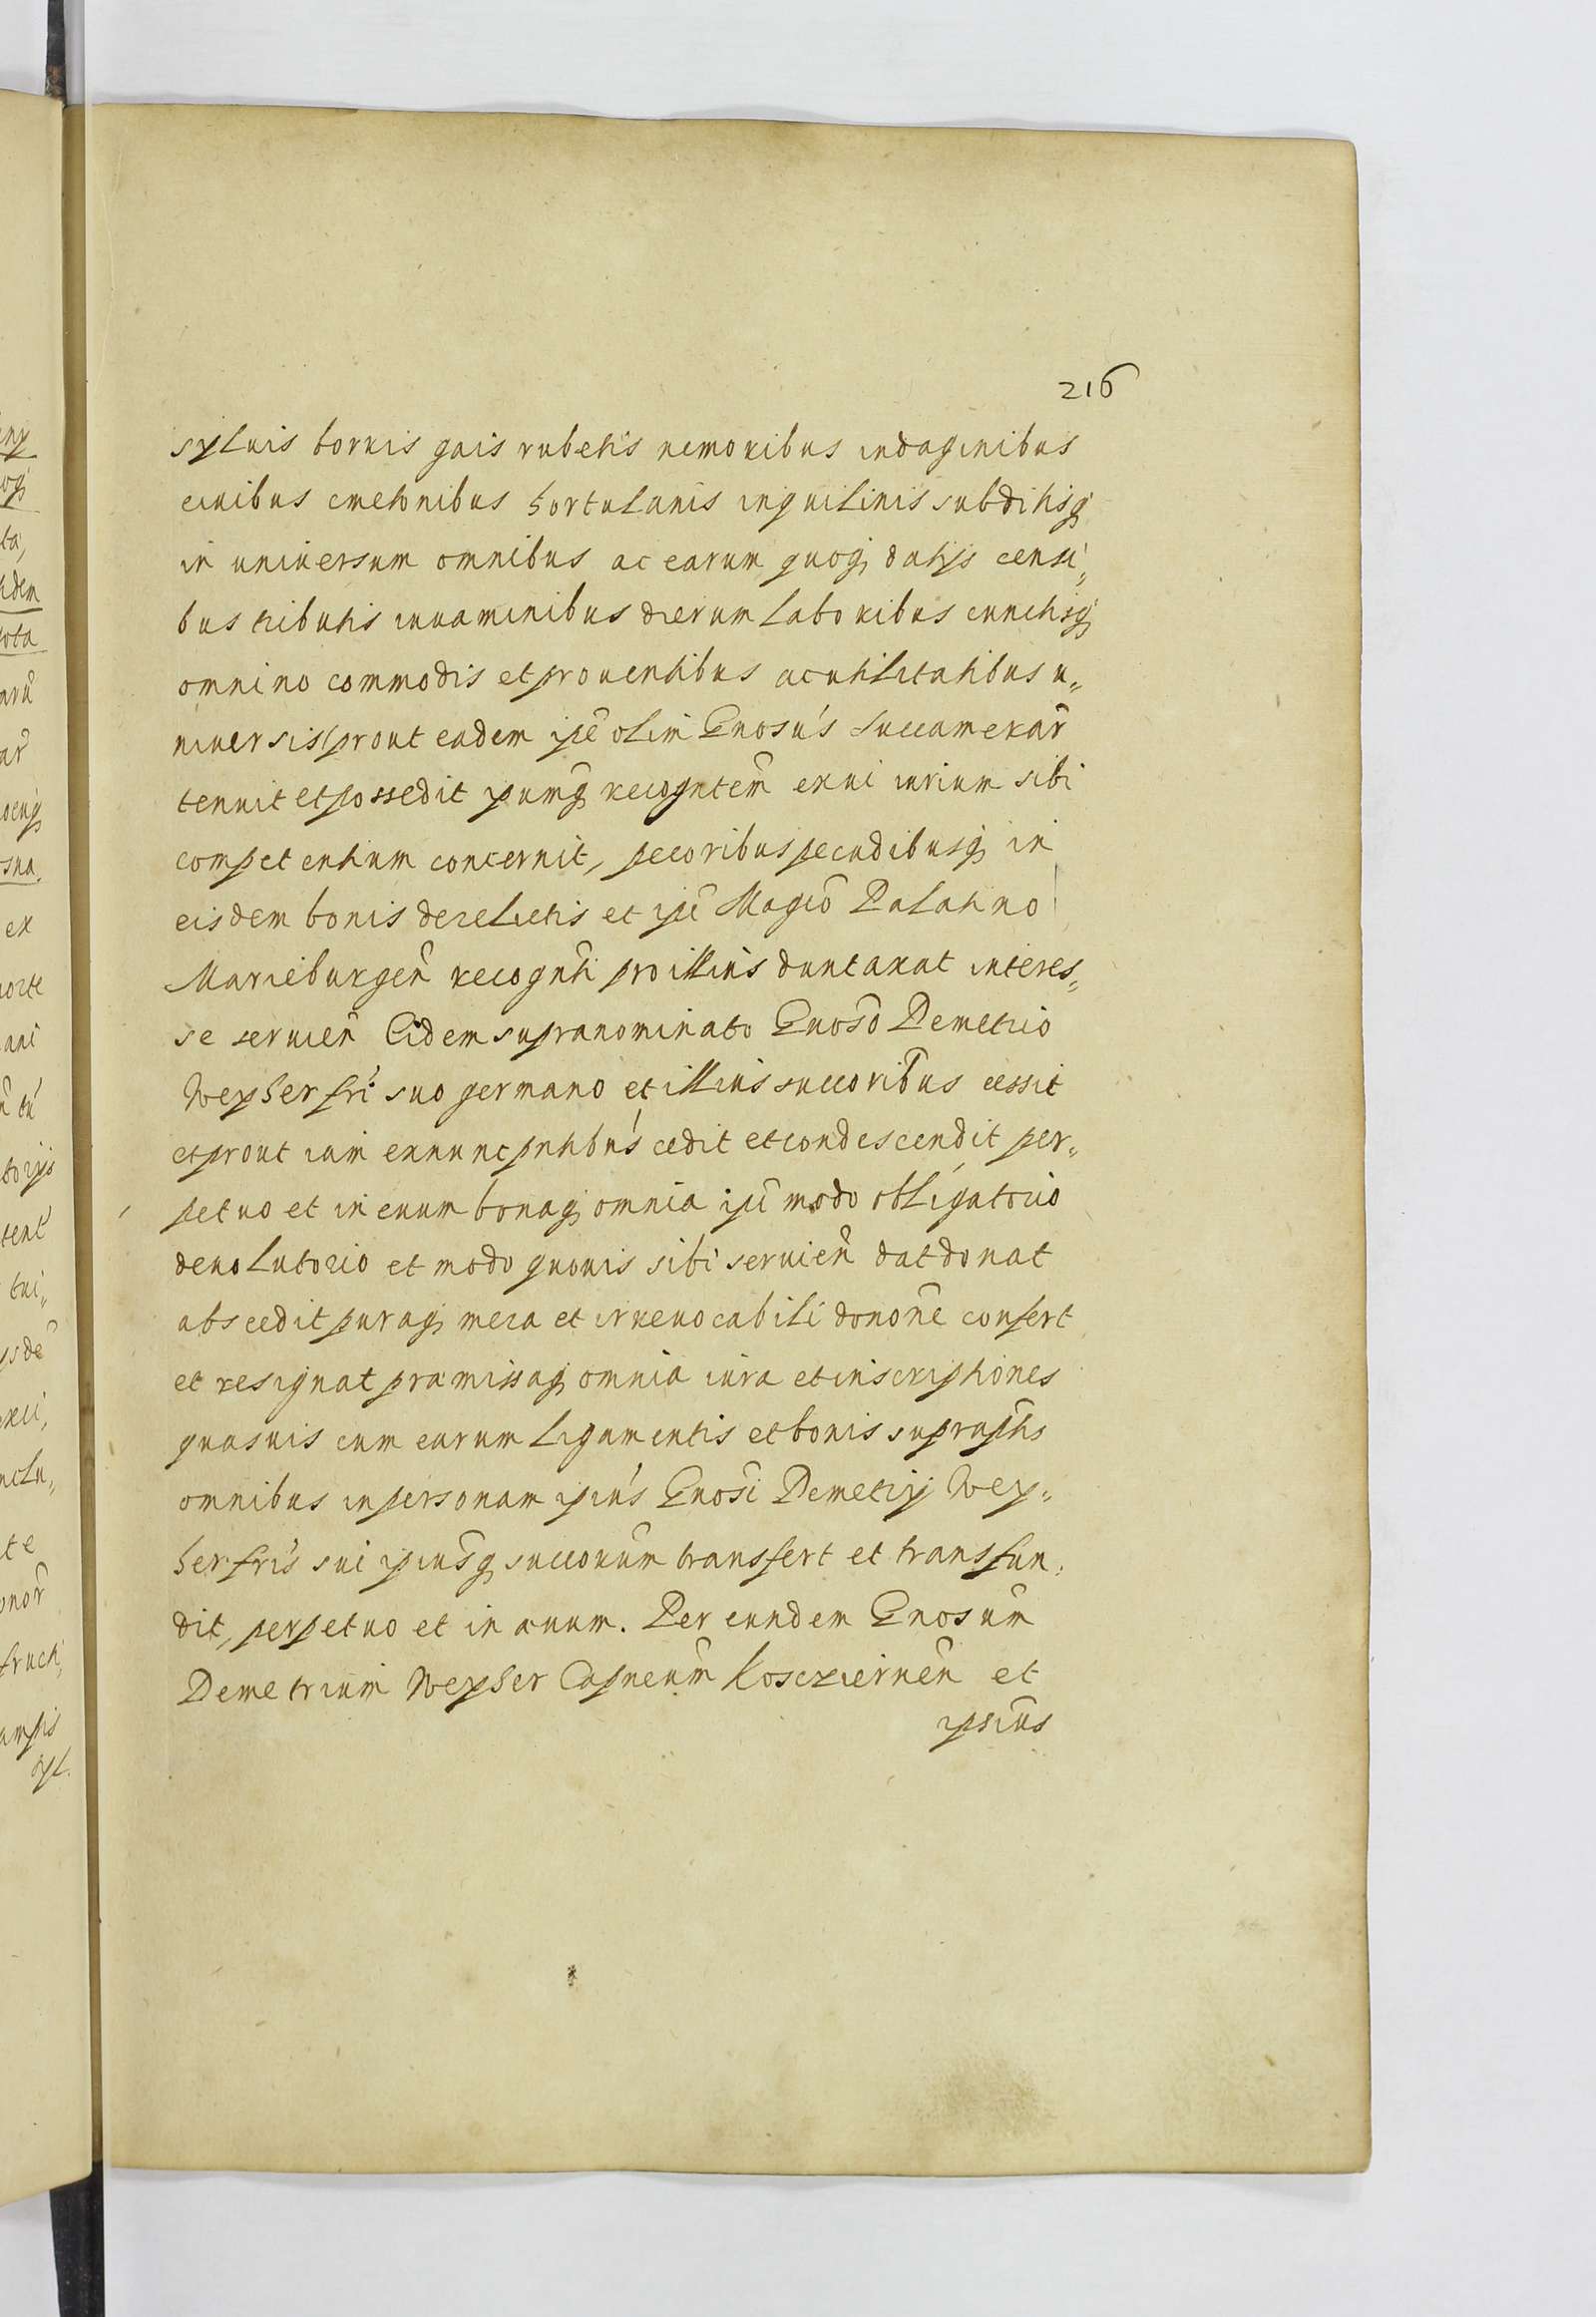 216
syluis borris gais rubetis nemoribus indaginibus
ciuibus cmetonibus hortulanis inquilinis subditisq
in uniuersum omnibus ac earum quoq datijs censi„
bus tributis iuuaminibus dierum laboribus cunctisq
omnino commodis et prouentibus ac utilitatibus u„
niuersis prout eadem ipe olim Gnosus Succamerar
tenuit et possedit ipsumq recogntem exui iurium sibi
competentium concernit, pecoribus pecudibusq in
eisdem bonis derelictis et ipi Magco Palatino
Marieburgen recognti pro illius duntaxat interes„
se seruien Eidem supranominato Gnoso Demetrio
Weyher fri suo germano et illius succoribus cessit
et prout iam exnunc pntibus cedit et condescendit per„
petuo et in euum bonaq omnia ipi modo obligatorio
deuolutorio et modo quouis sibi seruien dat donat
abscedit puraq mera et irreuocabili donone confert
et resignat præmissaq omnia iura et inscriptiones
quasuis cum earum ligamentis et bonis suprapts
omnibus in personam ipius Gnosi Demetrij Wey„
her fris sui ipiusq succorum transfert et transfun„
dit, perpetuo et in æuum. Per eundem Gnosum
Demetrium Weyher Capneum Koscziernen et
ipsius